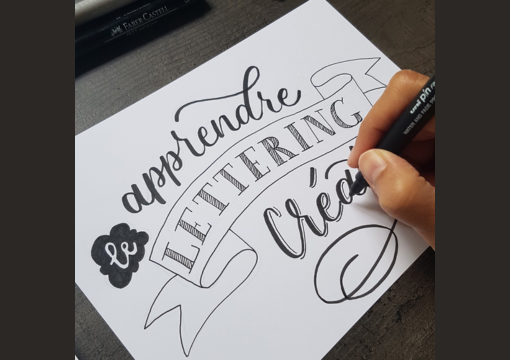 apprendre
le
LETTERING
Créa
FABER-CASTELL
uni pin